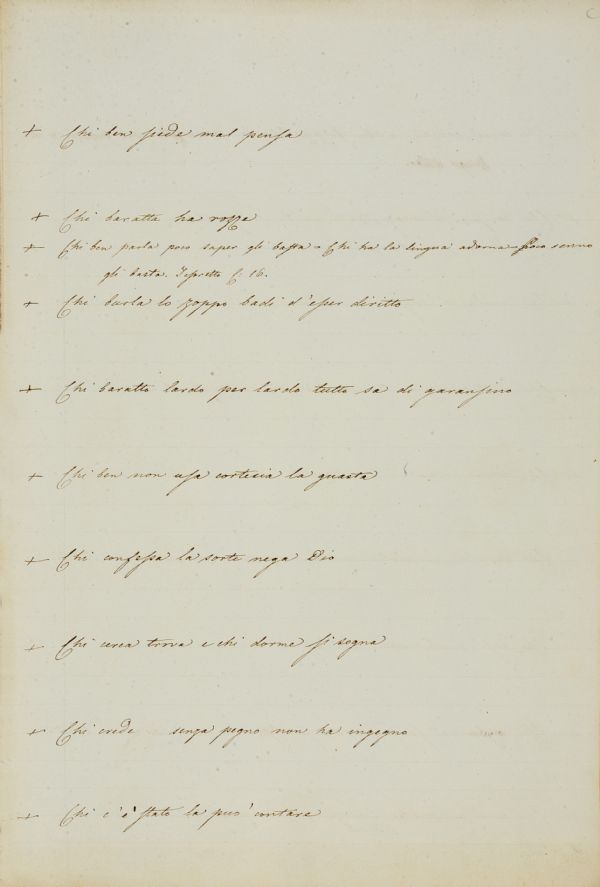 C
+ Chi ben siede mal pensa
+ Chi baratta ha rozze
+ Chi ben parla poco saper gli basta = Chi ha la lingua adorna poco senno
gli basta. C. 16.
+ Chi burla lo zoppo badi d'esser diritto
+ Chi baratto lardo per lardo tutto sa di
+ Chi ben non usa cortesia la guasta
+ Chi confessa la sorte nega Dio
+ Chi cerca trova e chi dorme si sogna
+ Chi crede senza pegno non ha ingegno
+ Chi c'è stato la può contare